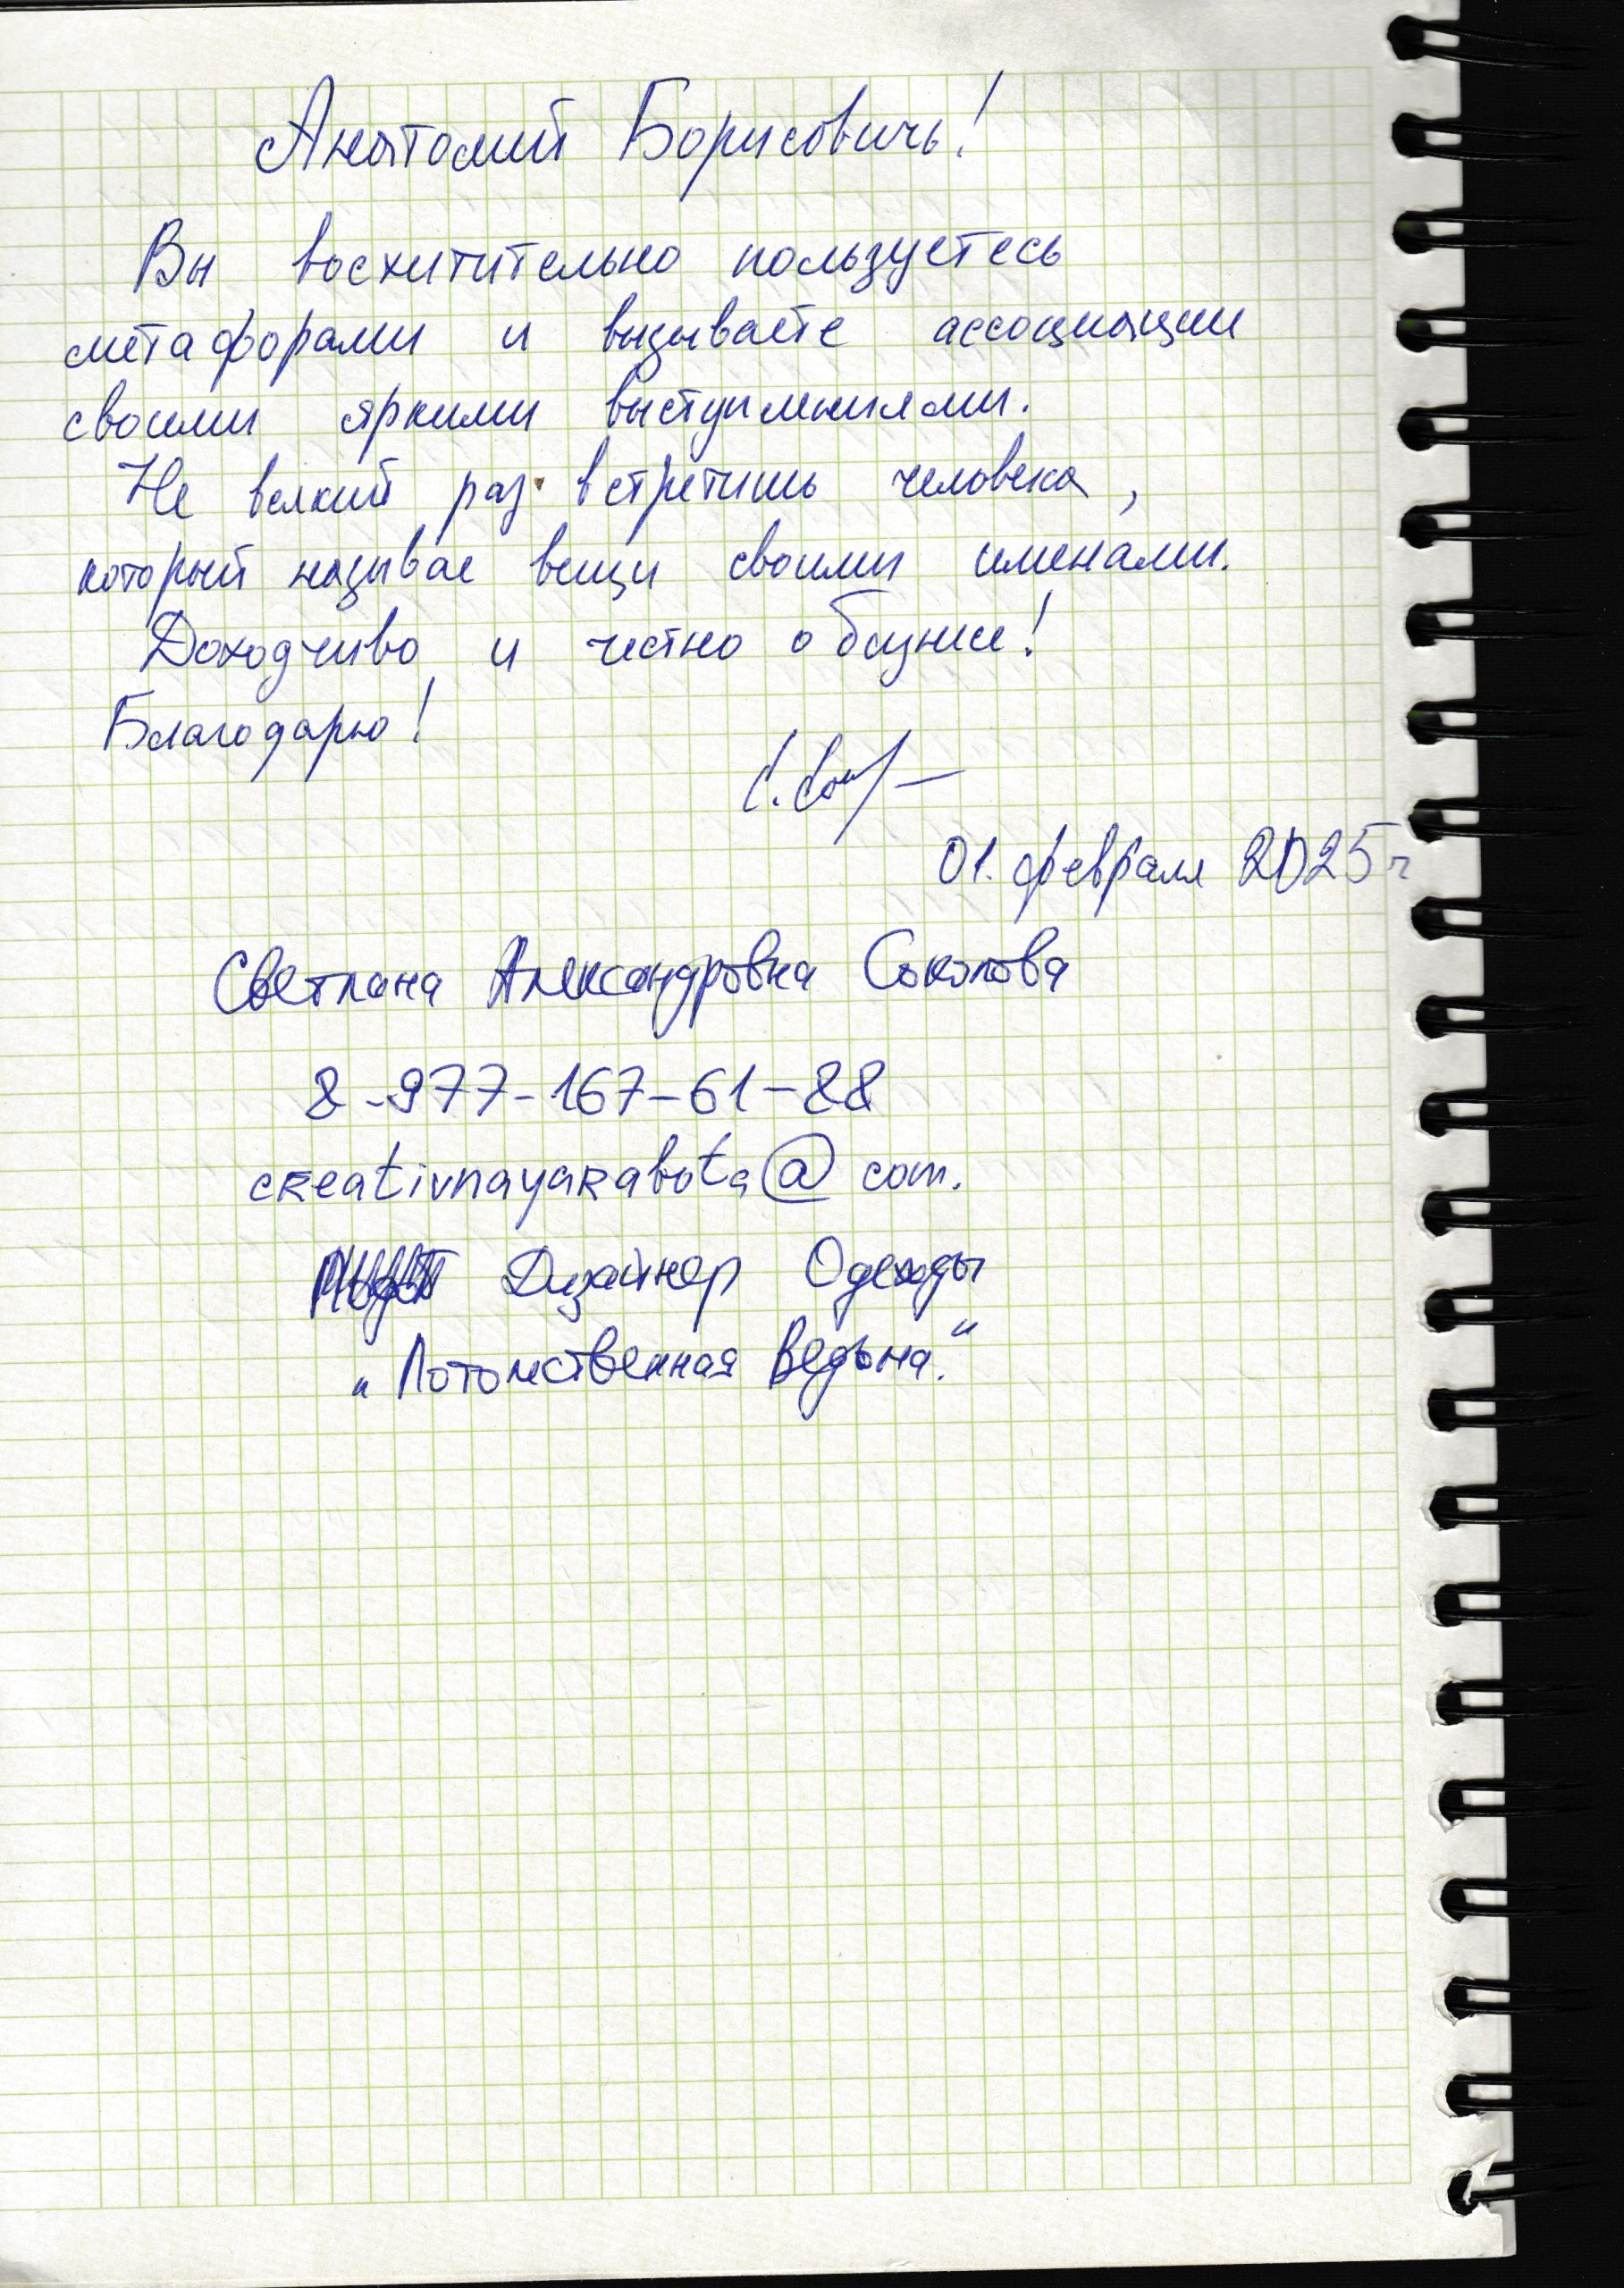 Анатолий Борисовичь!
Вы восхитительно пользуетесь
метафорами и вызываете ассоциации
своими яркими выступлениями.
Не всякий раз встретишь человека,
который называе вещи своими именами.
Доходчиво и честно
Благодарю!
01. февраля 2025г
Светлана Александровна Соколова
8-977-167-61-88
creativnayarabota@com.
Дизайнер Одежды
„Потомственная Ведьма.“